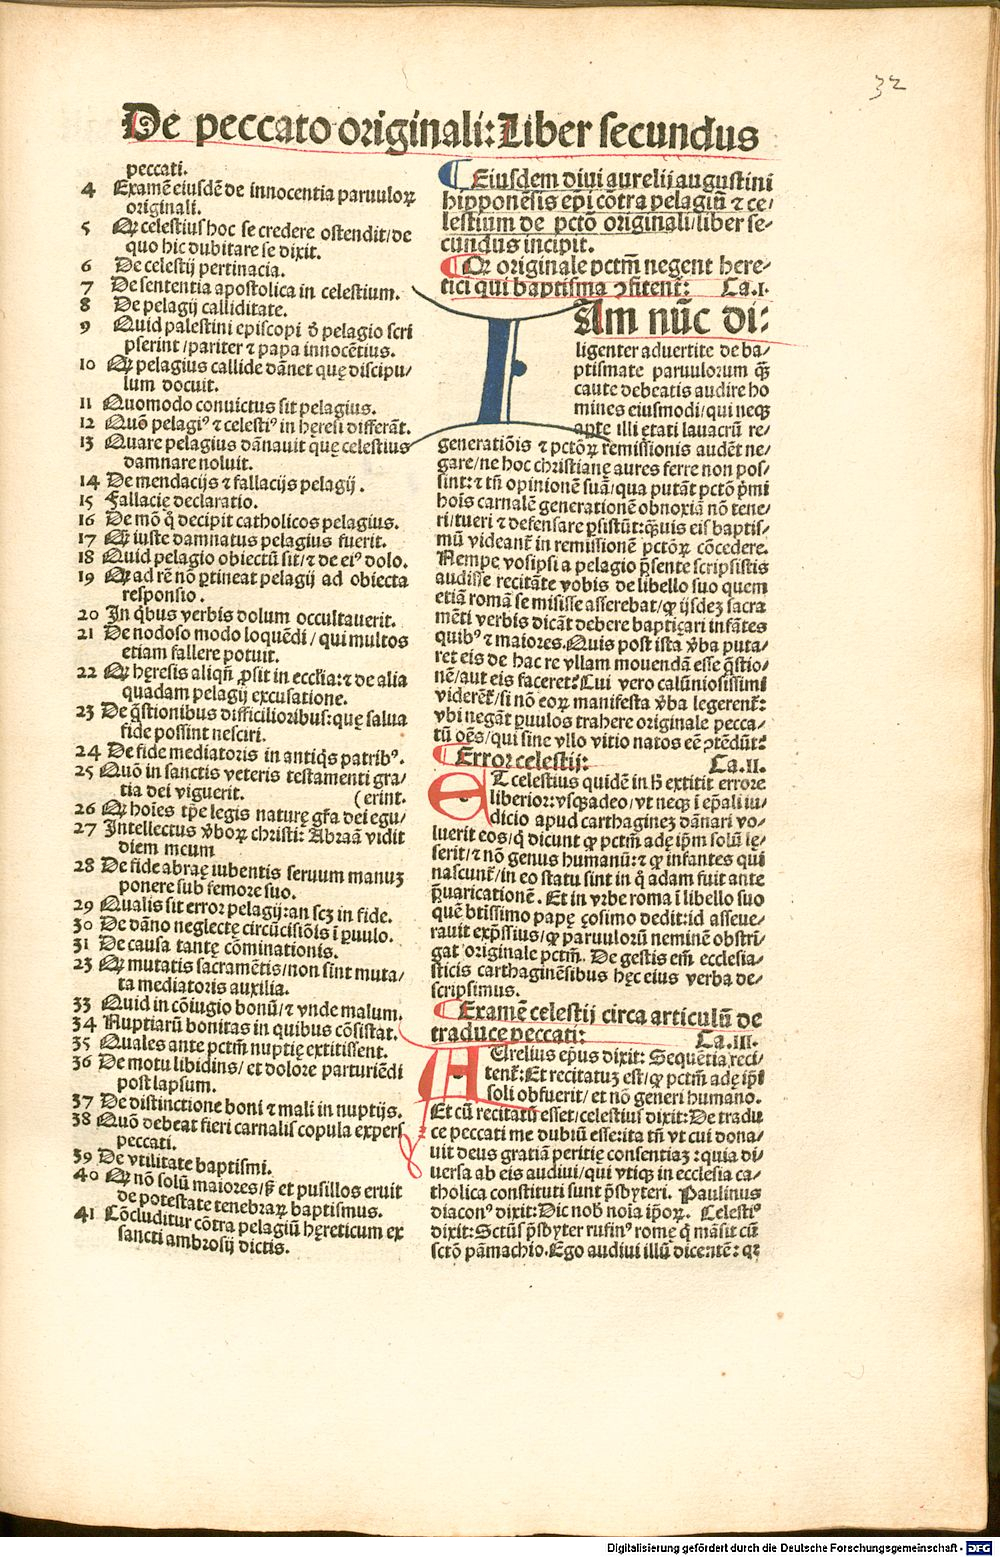 32
De peccato originali: Liber secundus
peccati.
4 Examē eiusdē de innocentia paruuloꝝ
originali.
5 Qꝫ celestius hoc se credere ostendit/de
quo hic dubitare se dixit.
6 De celestij pertinacia.
7 De sententia apostolica in celestium.
8 De pelagij calliditate.
9 Quid palestini episcopi ō pelagio scri
pserint/pariter ⁊ papa innocētius.
10 Qꝫ pelagius callide dānet quę discipu/
lum docuit.
11 Quomodo conuictus sit pelagius.
12 Quō pelagiꝰ ⁊ celestiꝰ in hęresi differāt.
13 Quare pelagius dānauit quę celestius
damnare noluit.
14 De mendacijs ⁊ fallacijs pelagij.
15 Fallacię declaratio.
16 De mō q̄ decipit catholicos pelagius.
17 Qꝫ iuste damnatus pelagius fuerit.
18 Quid pelagio obiectū sit/⁊ de eiꝰ dolo.
19 Qꝫ ad rē nō ꝑtineat pelagij ad obiecta
responsio.
20 In q̄bus verbis dolum occultauerit.
21 De nodoso modo loquēdi/qui multos
etiam fallere potuit.
22 Qꝫ hęresis aliqñ ꝓsit in eccľia: ⁊ de alia
quadam pelagij excusatione.
23 De q̄stionibus difficilioribus: quę salua
fide possint nesciri.
24 De fide mediatoris in antiq̄s patribꝰ.
25 Quō in sanctis veteris testamenti gra/
tia dei viguerit. (erint.
26 Qꝫ hoīes tp̄e legis naturę gr̄a dei egu/
27 Intellectus v̄boꝝ christi: Abraā vidit
diem meum
28 De fide abraę iubentis seruum manuꝫ
ponere sub femore suo.
29 Qualis sit error pelagij: an scꝫ in fide.
30 De dāno neglectę circūcisiōis ī ꝑuulo.
31 De causa tantę cōminationis.
23 Qꝫ mutatis sacramētis/non sint muta/
ta mediatoris auxilia.
33 Quid in cōiugio bonū/⁊ vnde malum.
34 Nuptiarū bonitas in quibus cōsistat.
35 Quales ante pctm̄ nuptię extitissent.
36 De motu libidins/et dolore parturiēdi
post lapsum.
37 De distinctione boni ⁊ mali in nuptijs.
38 Quō debeat fieri carnalis copula expers
peccati.
39 De vtilitate baptismi.
40 Qꝫ nō solū maiores/ß et pusillos eruit
de potestate tenebraꝝ baptismus.
41 Cōcluditur cōtra pelagiū hęreticum ex
sancti ambrosij dictis.
¶ Eiusdem diui aurelij augustini
hipponēsis ep̄i cōtra pelagiū ⁊ ce/
lestium de pctō originali/liber se/
cundus incipit.
¶ Qꝫ originale pctm̄ negent here/
tici qui baptisma ꝯfitent̄: Ca.I.
IAm nūc di:
ligenter aduertite de ba/
ptismate paruulorum q̄ꝫ
caute debeatis audire ho
mines eiusmodi/qui neqꝫ
apte illi etati lauacrū re/
generatiōis ⁊ pctōꝝ remissionis audēt ne/
gare/ne hoc christianę aures ferre non pos/
sint: ⁊ tñ opinionē suā/qua putāt pctō p̄mi
hoīs carnalē generationē obnoxiā nō tene/
ri/tueri ⁊ defensare ꝑsistūt: q̄ꝫuis eis baptis/
mū videant̄ in remissionē pctōꝝ cōcedere.
Nempe vosipsi a pelagio p̄sente scripsistis
audisse recitāte vobis de libello suo quem
etiā romā se misisse asserebat/ꝙ ijsdeꝫ sacra
mēti verbis dicāt debere baptiçari infātes
quibꝰ ⁊ maiores. Quis post ista v̄ba puta/
ret eis de hac re vllam mouendā esse q̄stio/
nē/aut eis faceret: Cui vero calūniosissimi
viderēt̄/si nō eoꝝ manifesta v̄ba legerent̄:
vbi negāt ꝑuulos trahere originale pecca/
tū oēs/qui sine vllo vitio natos eē ꝯtēdūt:
¶ Error celestij: Ca.II.
ET celestius quidē in ħ extitit errore
liberior: vsqꝫadeo/vt neqꝫ ī ep̄ali iu/
dicio apud carthagineꝫ dānari vo/
luerit eos/q̄ dicunt ꝙ pctm̄ adę ip̄m solū lę/
serit/⁊ nō genus humanū: ⁊ ꝙ infantes qui
nascunt̄/in eo statu sint in q̄ adam fuit ante
p̄uaricationē. Et in vrbe roma ī libello suo
quē btissimo papę çosimo dedit: id asseue/
rauit exp̄ssius/ꝙ paruulorū neminē obstrī/
gat originale pctm̄. De gestis em̄ ecclesia/
sticis carthaginēsibus hęc eius verba de/
scripsimus.
¶ Examē celestij circa articulū de
traduce peccati: Ca.III.
AUrelius ep̄us dixit: Sequētia reci/
tent̄: Et recitatuꝫ est/ꝙ pctm̄ adę ip̄i
soli obfuerit/et nō generi humano.
Et cū recitatū esset/celestius dixit: De tradu
ce peccati me dubiū esse: ita tñ vt cui dona/
uit deus gratiā peritię consentiaꝫ: quia di/
uersa ab eis audiui/qui vtiqꝫ in ecclesia ca/
tholica constituti sunt p̄sbyteri. Paulinus
diaconꝰ dixit: Dic nob̄ noīa ip̄oꝝ. Celestiꝰ
dixit: Sctūs p̄sbyter rufinꝰ romę q̄ māsit cū
sctō pāmachio. Ego audiui illū dicentē: qꝛ
Digitalisierung gefördert durch die Deutsche Forschungsgemeinschaft - DFG